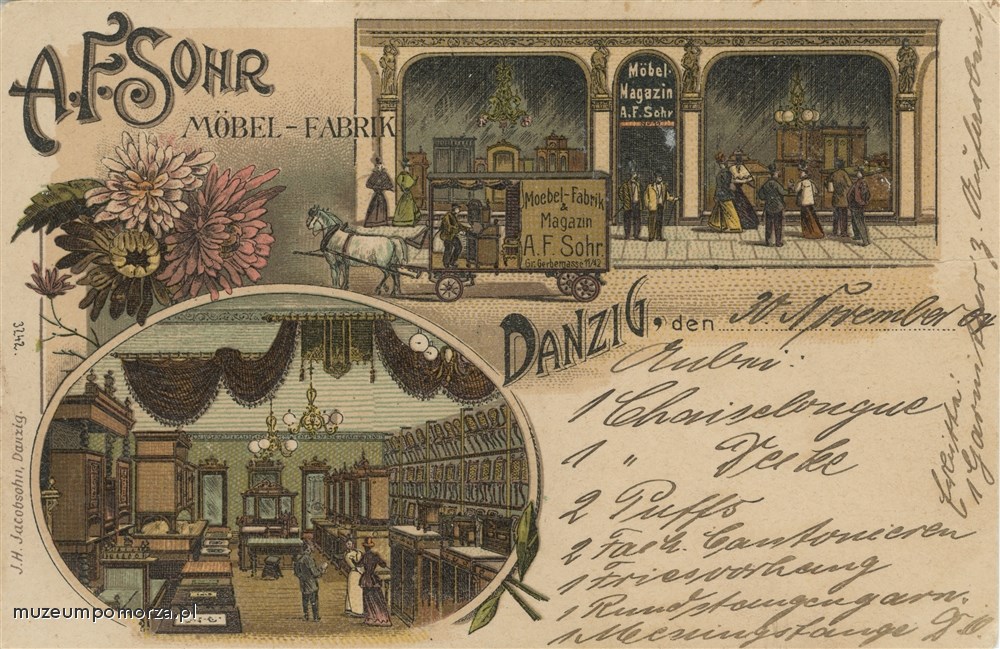 A. F. SOHR
MÖBEL-FABRIK
Möbel-
Magazin
A. F. Sohr
Moebel-Fabrik
&
Magazin
A. F. Sohr
Gr. Gerbergasse 11/12
DANZIG, den 30 November
1 Chaiselongue
1 " Decke
2 Puffs
2 Cantonieren
1 Friesvorhang
1 Rundstangengarn.
1 Messingstange
1 Garnitur z.
3242.
J. H. Jacobsohn, Danzig.
muzeumpomorza.pl